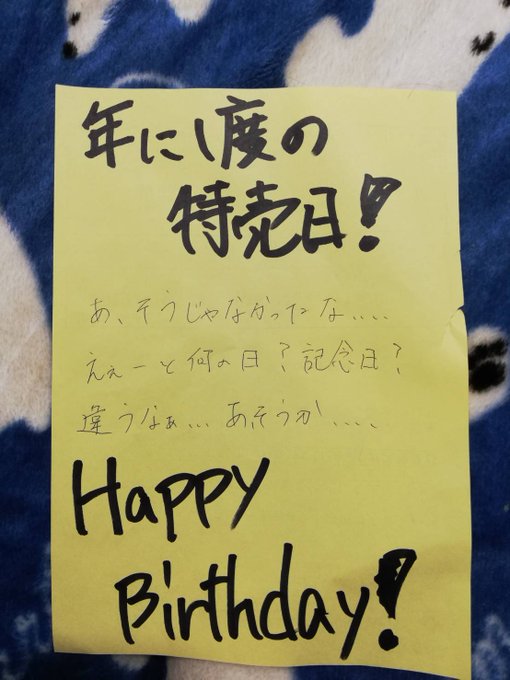 年に1度の
特売日!
あ、そうじゃなかったな....
えぇーと何の日?記念日?
違うなぁ... あ、そうか....
Happy
Birthday!